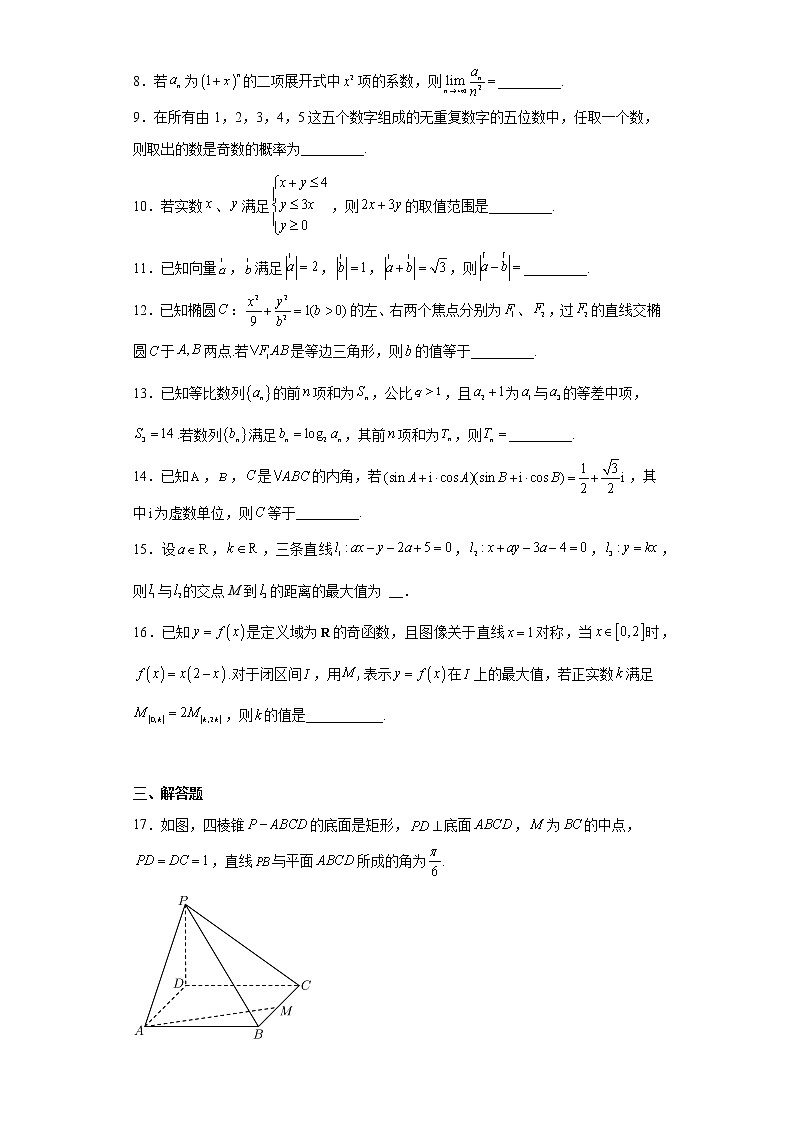 8．若 aₙ 为 (1+x)ⁿ 的二项展开式中 x² 项的系数，则 lim n→+∞ aₙ/n² = _________.
9．在所有由 1，2，3，4，5 这五个数字组成的无重复数字的五位数中，任取一个数，
则取出的数是奇数的概率为_________.
10．若实数 x 、 y 满足 { x + y ≤ 4 y ≤ 3x y ≥ 0 ，则 2x + 3y 的取值范围是_________.
11．已知向量 a⃗ ， b⃗ 满足 |a⃗| = 2 ， |b⃗| = 1 ， |a⃗ + b⃗| = √3 ，则 |a⃗ − b⃗| = _________.
12．已知椭圆 C ： x²/9 + y²/b² = 1(b > 0) 的左、右两个焦点分别为 F₁ 、 F₂ ，过 F₂ 的直线交椭
圆 C 于 A, B 两点.若 VF₁AB 是等边三角形，则 b 的值等于_________.
13．已知等比数列 {aₙ} 的前 n 项和为 Sₙ ，公比 q > 1 ，且 a₂ + 1 为 a₁ 与 a₃ 的等差中项，
S₃ = 14 .若数列 {bₙ} 满足 bₙ = log₂ aₙ ，其前 n 项和为 Tₙ ，则 Tₙ = _________.
14．已知 A ， B ， C 是 VABC 的内角，若 (sin A + i·cos A)(sin B + i·cos B) = 1/2 + √3/2 i ，其
中 i 为虚数单位，则 C 等于_________.
15．设 a ∈ R ， k ∈ R ，三条直线 l₁ : ax − y − 2a + 5 = 0 ， l₂ : x + ay − 3a − 4 = 0 ， l₃ : y = kx ，
则 l₁ 与 l₂ 的交点 M 到 l₃ 的距离的最大值为 __．
16．已知 y = f(x) 是定义域为 R 的奇函数，且图像关于直线 x = 1 对称，当 x ∈ [0,2] 时，
f(x) = x(2 − x) .对于闭区间 I ，用 M_I 表示 y = f(x) 在 I 上的最大值，若正实数 k 满足
M_[0,k] = 2M_[k,2k] ，则 k 的值是___________.
三、解答题
17．如图，四棱锥 P − ABCD 的底面是矩形， PD ⊥ 底面 ABCD ， M 为 BC 的中点，
PD = DC = 1 ，直线 PB 与平面 ABCD 所成的角为 π/6 .
P
D
C
M
A
B